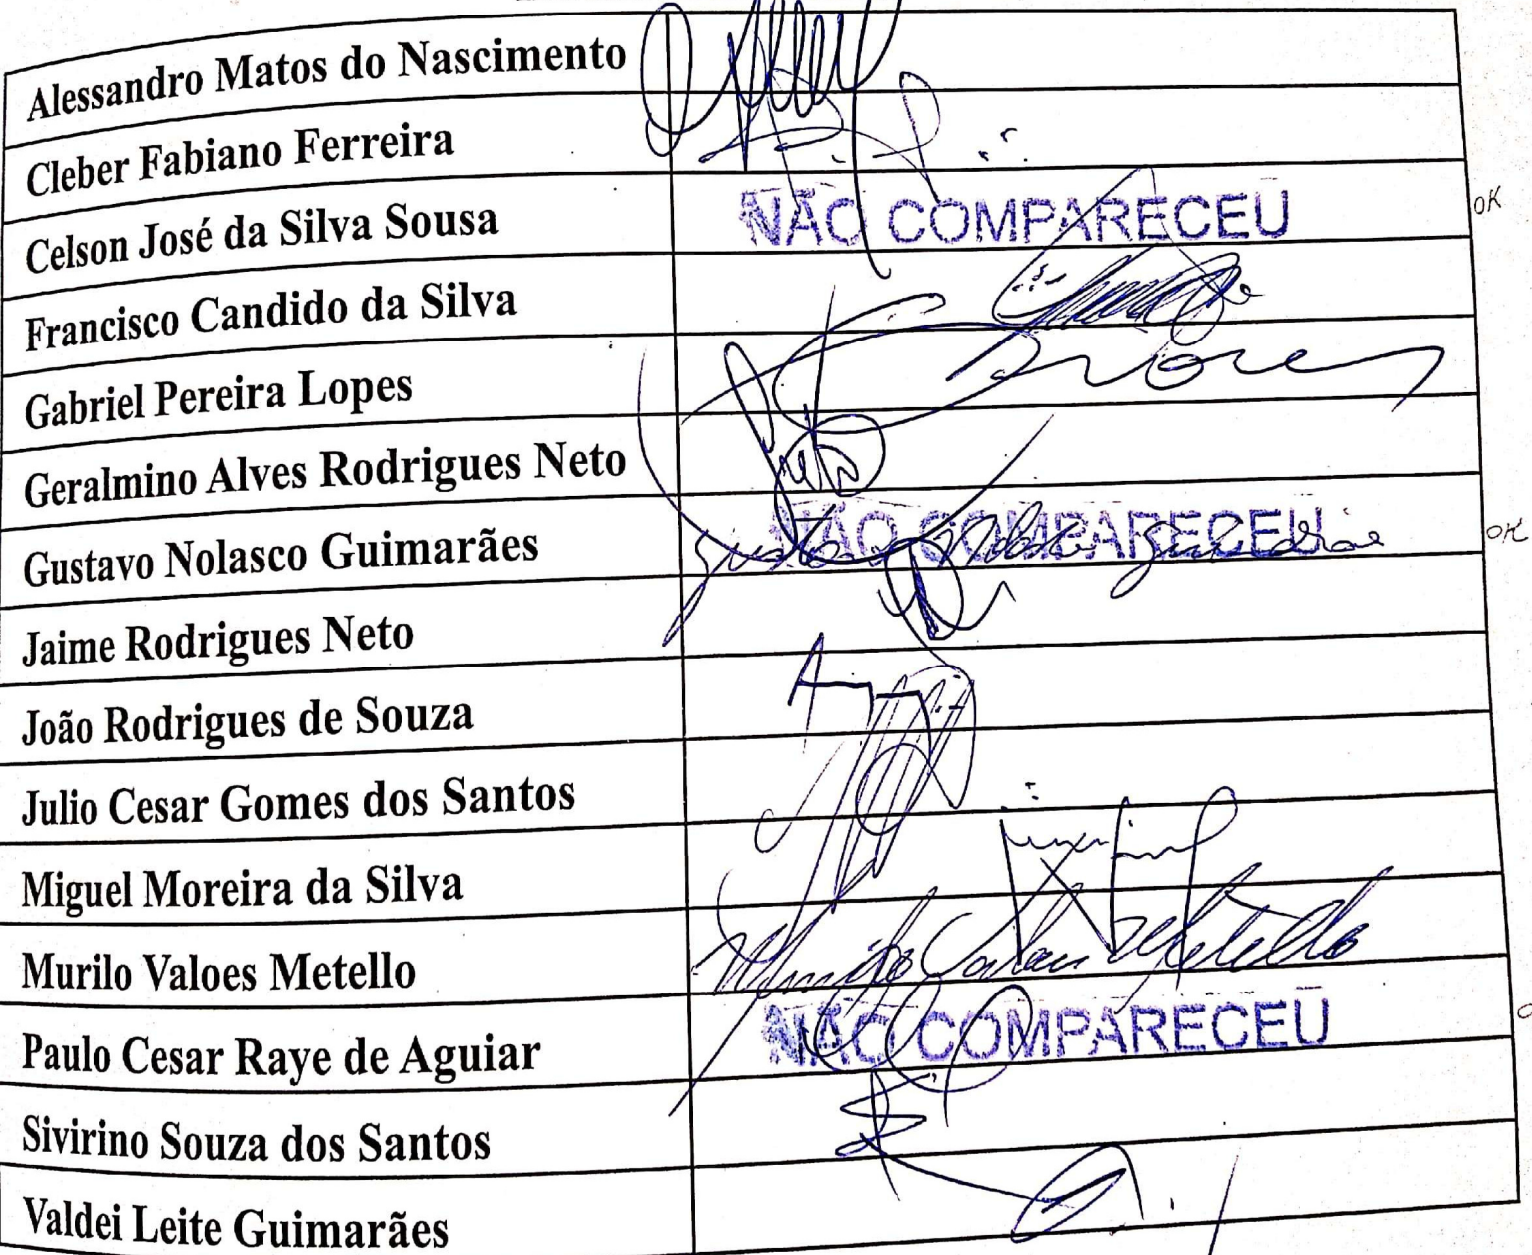 Alessandro Matos do Nascimento
Cleber Fabiano Ferreira
Celson José da Silva Sousa NÃO COMPARECEU OK
Francisco Candido da Silva
Gabriel Pereira Lopes
Geralmino Alves Rodrigues Neto
Gustavo Nolasco Guimarães NÃO COMPARECEU OK
Jaime Rodrigues Neto
João Rodrigues de Souza
Julio Cesar Gomes dos Santos
Miguel Moreira da Silva
Murilo Valoes Metello Murilo Valoes Metello
Paulo Cesar Raye de Aguiar NÃO COMPARECEU
Sivirino Souza dos Santos
Valdei Leite Guimarães